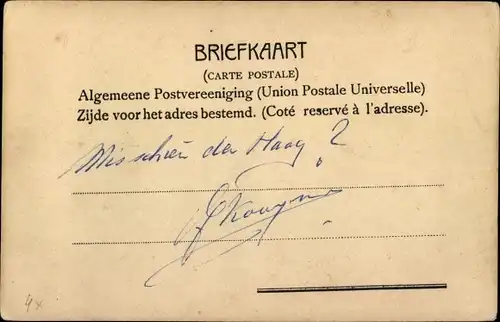 BRIEFKAART
(CARTE POSTALE)
Algemeene Postvereeniging (Union Postale Universelle)
Zijde voor het adres bestemd. (Coté reservé à l'adresse).
Misschien den Haag?
4x